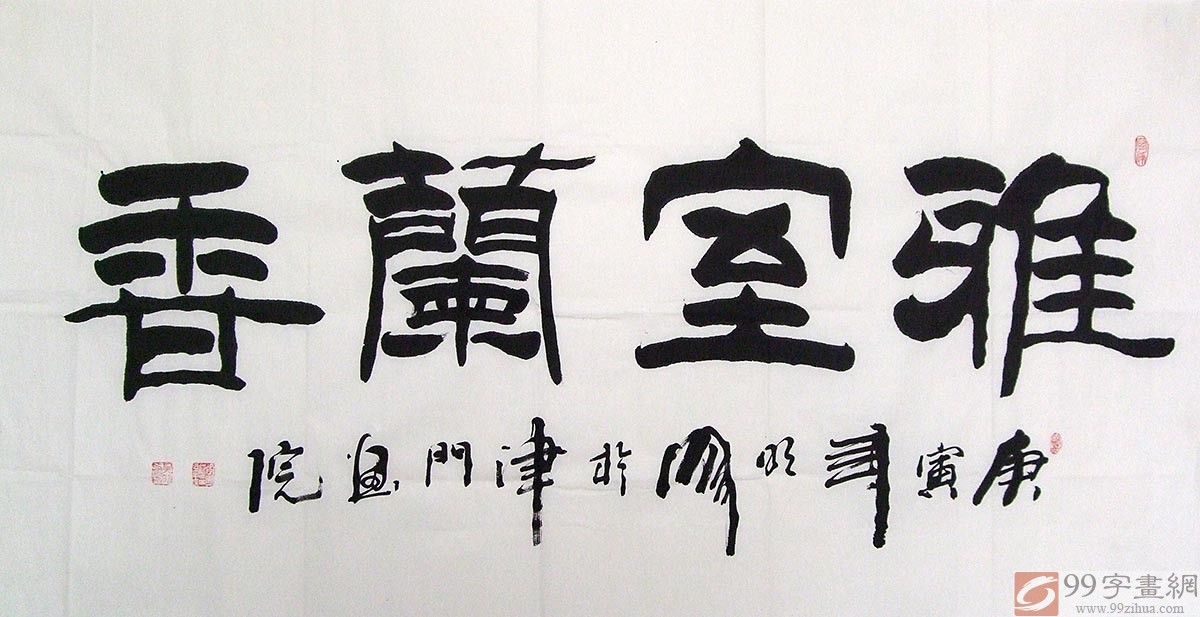 雅室蘭香
庚寅明於津門画院
99字畫網
www.99zihua.com